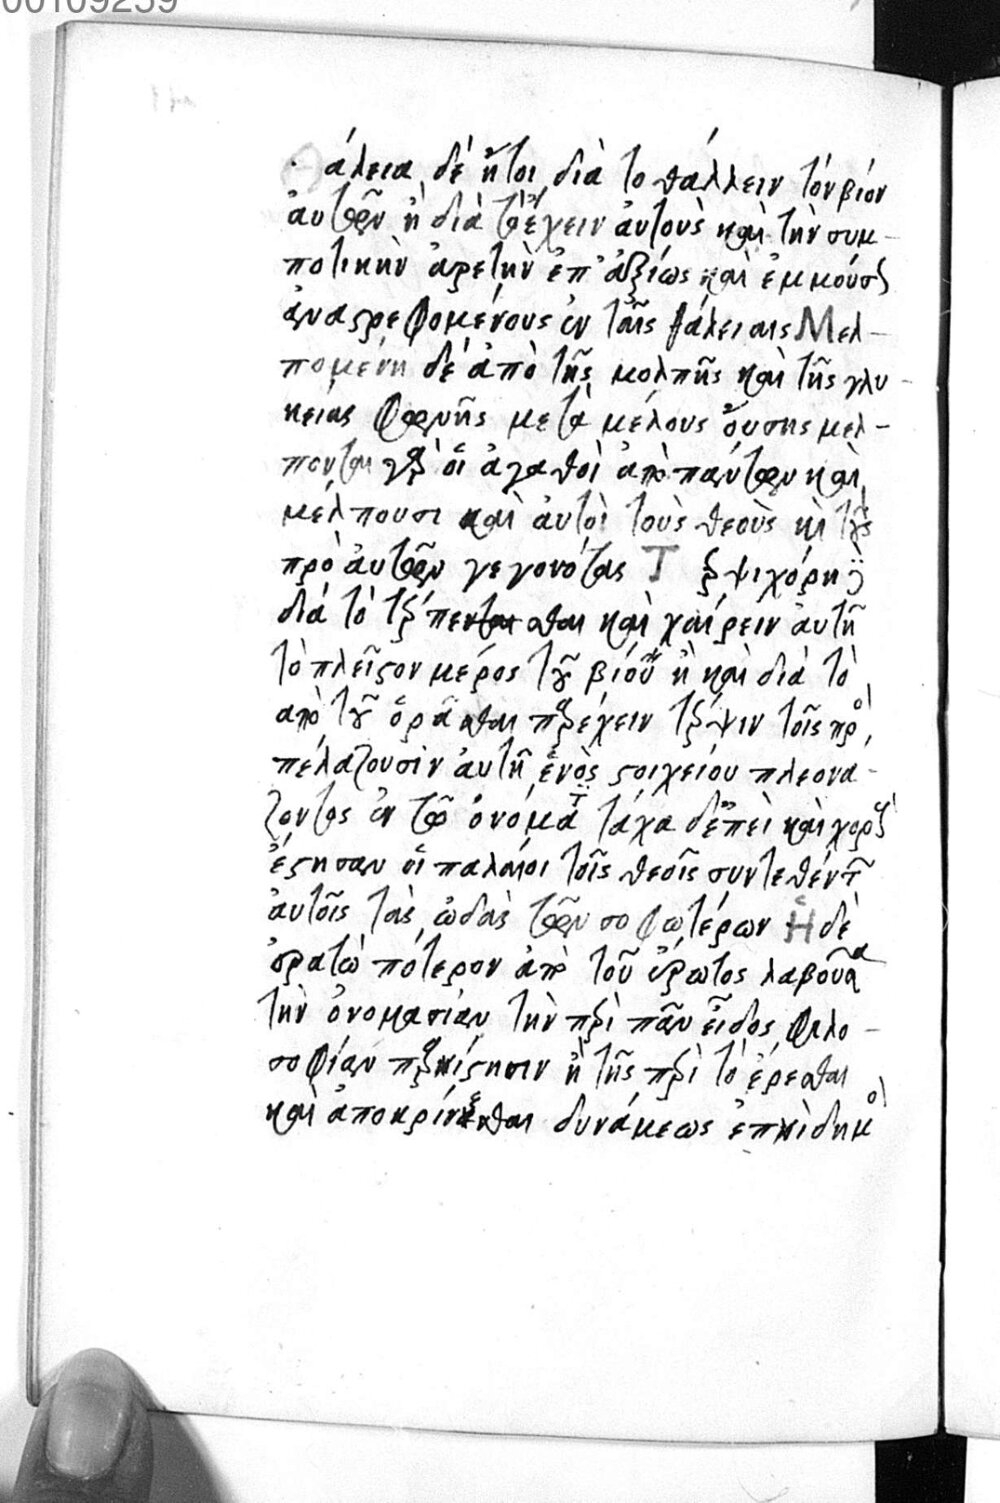 00109239
άλεια δέ ἤτοι διὰ το θάλλειν τόν βίον
ἀυτῶν ἢ διὰ τὸ ἔχειν ἀυτοὺς καὶ τὴν συμ-
ποτικὴν ἀρετὴν ἐπ' ἀξίως καὶ ἐμμούσως
ἀναστρεφομένους ἐν ταῖς θάλειαις Μελ-
πομένη δέ ἀπὸ τῆς μολπῆς καὶ τῆς γλυ-
κείας φωνῆς μετὰ μέλους ὄυσης μελ-
πονται γὰρ οἵ ἀγαθοὶ ἀπὸ πάντων καὶ
μέλπουσι καὶ ἀυτοὶ τοὺς θεοὺς καὶ τοὺς
πρὸ ἀυτῶν γεγονότας Τερψιχόρη δὲ
διά τὸ τέρπεσθαι καὶ χαίρειν ἀυτῆ
τὸ πλεῖστον μέρος τοῦ βίου ἢ καὶ διὰ τὸ
απὸ τοῦ ὁρᾶσθαι παρέχειν τέρψιν τοῖς προ
πελάζουσιν ἀυτῆ ἑνὸς στοιχείου πλεονά-
ζοντος ἐν τῶ ὀνόματι τάχα δὲ ἐπεὶ καὶ χοροὺς
ἔστησαν οἵ παλαιοι τοῖς θεοῖς συντεθέντων
ἀυτοῖς τὰς ὠδὰς τῶν σοφωτέρων Ἡ δὲ
ἐρατὼ πότερον ἀπὸ τοῦ ἔρωτος λαβοῦσα
τὴν ὀνομασίαν τὴν περὶ πᾶν εἶδος φιλο-
σοφίαν παρίστησιν ἢ τῆς περὶ τὸ ἔρεσθαι
καὶ ἀποκρίνεσθαι δυνάμεως